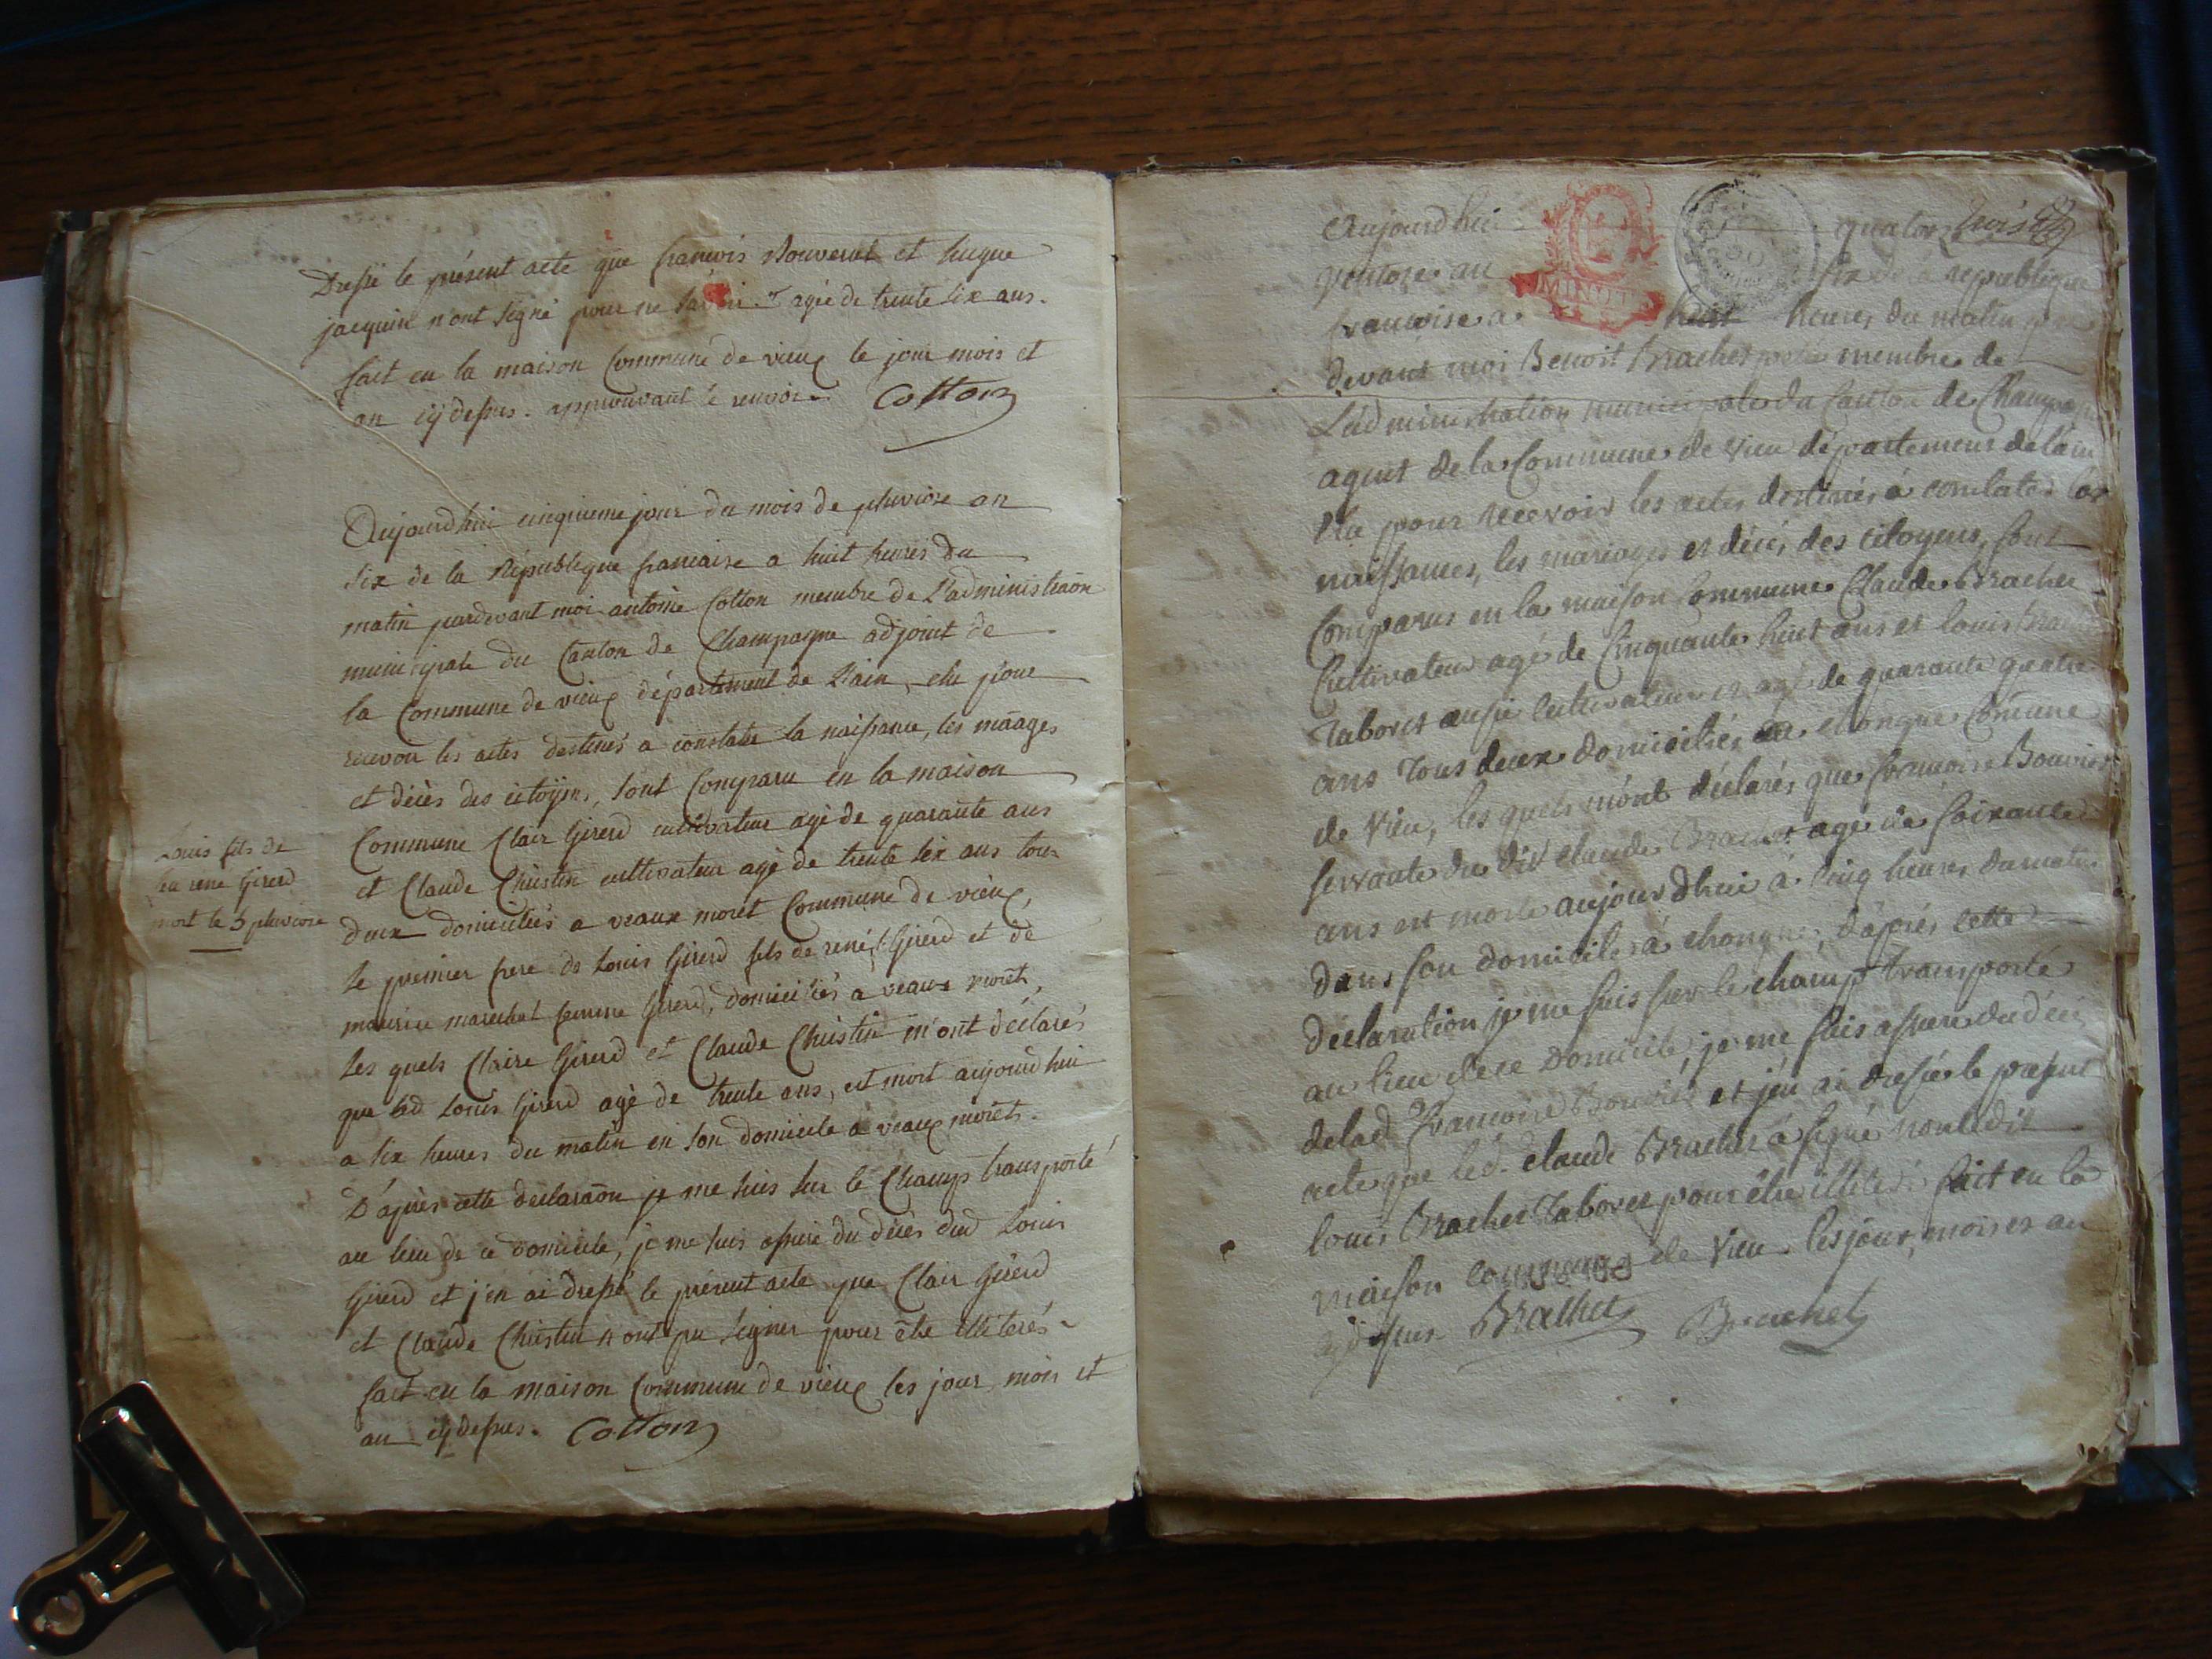 Dressé le présent acte que francois Rouverut et hugue
jacquin n'ont signé pour ne agée de trente six ans.
fait en la maison Commune de vieux le jour mois et
an cÿ dessus. approuvant le renvoi. Cotton
Aujourdhui cinquieme jour du mois de pluviose an
Six de la République francaise a huit heures du
matin pardevant moi antoine Cotton membre de L'administraõn
municipale du Canton de Champagne adjoint de
la Commune de vieux département de L'ain, elu pour
recevoir les actes destinés a constater la naissance, les mãages
et décès des citoÿens, sont Comparu en la maison
Commune Clair Girerd cultivateur agé de quarante ans
et Claude Christin cultivateur agé de trente six ans tous
deux domiciliés a veaux moret Commune de vieux,
Louis fils de
feu rené Girerd
mort le 5 pluviose
le premier frere de Louis Girerd fils de rené Girerd et de
marechal femme Girerd, domiciliés a veaux moret,
les quels Claire Girerd et Claude Christin m'ont déclarés
que led Louis Girerd agé de trente ans, est mort aujourdhui
a six heures du matin en son domicile a veaux moret.
D'après cette declaraõn je me suis sur le Champ transporté
au lieu de ce domicile, je me suis assuré du décès dud Louis
Girerd et j'en ai dressé le présent acte que Clair Girerd
et Claude Christin n'ont pu signer pour être illiterés.
fait en la maison Commune de vieux les jour, mois et
an cÿ dessus. Cotton
Aujourdhui quatorze
ventose an MINUTE six de la republique
francoise a huit heures du matin par
devant moi Benoit Brachet membre de
L'administration municipale du Canton de Champagne
agent de la Commune de Vieu département de l'ain
élu pour recevoir les actes destinés à constater les
naissances, les mariages et décés des citoyens, sont
Comparus en la maison Commune Claude Brachet
Cultivateur agé de Cinquante huit ans et louis Brachet
Taboret aussi cultivateur et agé de quarante quatre
ans Tous deux domiciliés a chongne Comune
de Vieu, les quels m'ont déclarés que francoise Bouvier
servante du dit claude Brachet agé de soixante
ans est morte aujourdhui à cinq heures du matin
dans son domicile à chongne, d'aprés cette
déclaration je me suis sur le champ transporté
au lieu de ce Domicile, je me suis assuré du décés
de lad francoise Bouvier et j'en ai dressé le present
acte que led. claude Brachet a signé non ledit
louis Brachet Taboret pour être illiteré. fait en la
maison commune de Vieu les jour, mois et an
cÿ dessus Brachet Brachet